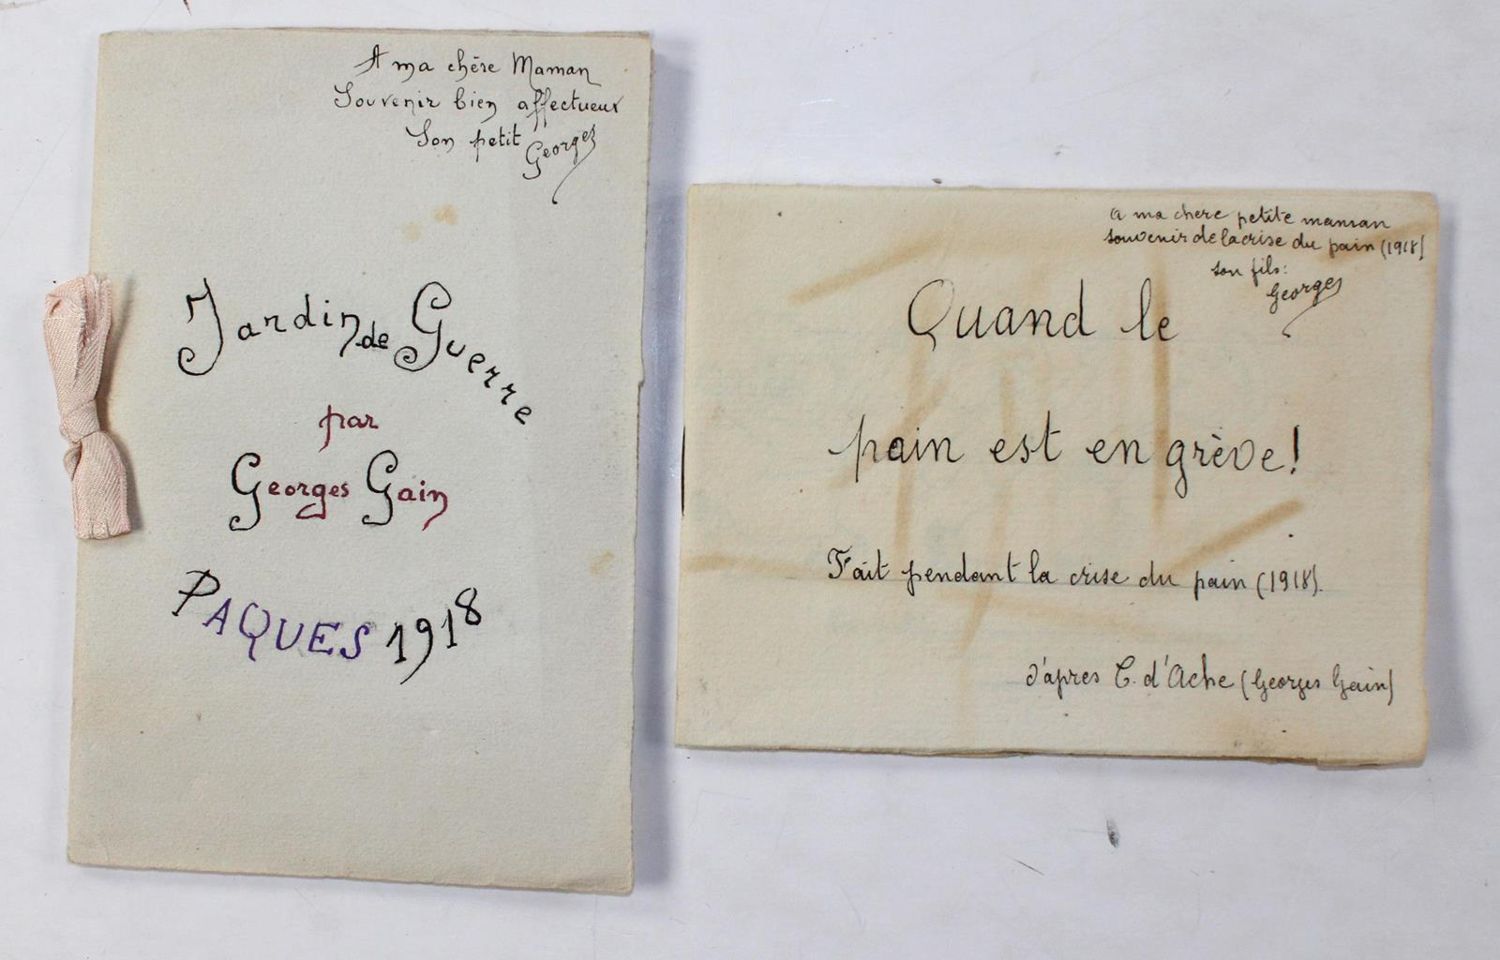 A ma chère Maman
Souvenir bien affectueux
Son petit Georges
Jardin de Guerre
par
Georges Gain
PAQUES 1918
a ma chere petite maman
souvenir de la crise du pain (1918)
son fils:
Georges
Quand le
pain est en grève!
Fait pendant la crise du pain (1918).
d'après C. d'Ache (Georges Gain)